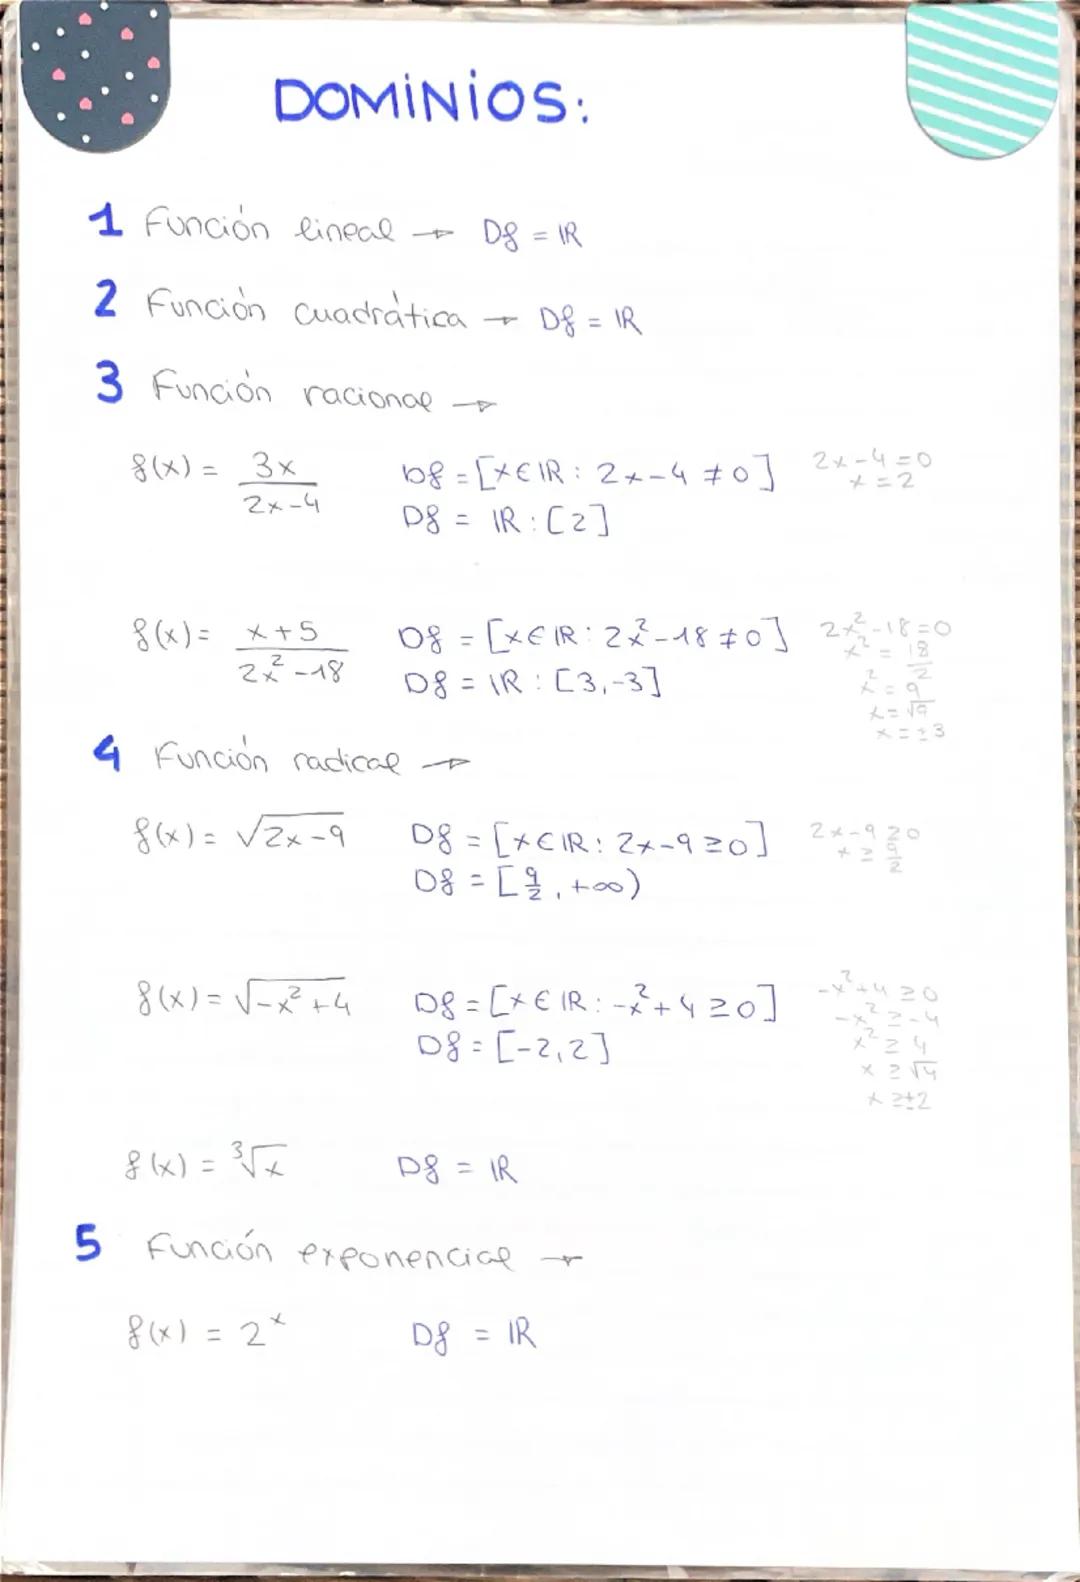 DOMINIOS:
1 Función lineal → Df = ℝ
2 Función cuadrática → Df = ℝ
3 Función racional →
f(x) = 3x / 2x-4   Df = [x∈ℝ: 2x-4 ≠ 0]   2x-4=0
x=2
Df = ℝ: [2]
f(x) = x+5 / 2x²-18   Df = [x∈ℝ: 2x²-18 ≠ 0]   2x²-18=0
x² = 18/2
Df = ℝ: [3,-3]   x² = 9
x = √9
x = ±3
4 Función radical →
f(x) = √2x-9   Df = [x∈ℝ: 2x-9 ≥ 0]   2x-9 ≥ 0
x ≥ 9/2
Df = [9/2, +∞)
f(x) = √-x²+4   Df = [x∈ℝ: -x²+4 ≥ 0]   -x²+4 ≥ 0
-x² ≥ -4
Df = [-2,2]   x² ≥ 4
x ≥ √4
x ≥ ±2
f(x) = ³√x   Df = ℝ
5 Función exponencial →
f(x) = 2ˣ   Df = ℝ